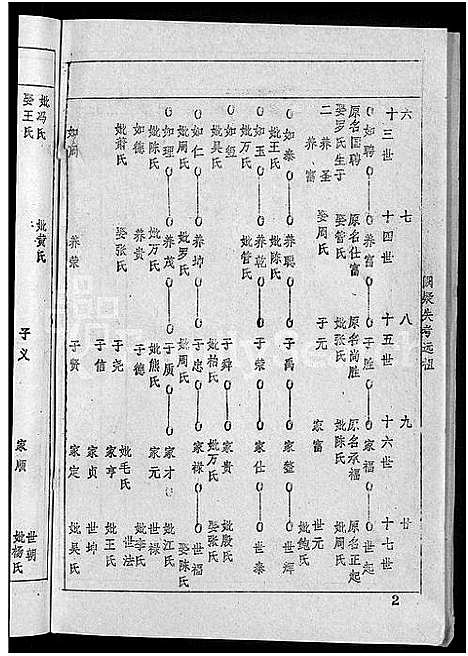 阙疑失考远祖
六 七 八 九 廿
十三世 十四世 十五世 十六世 十七世
如聘 养富 于胜 家福 世起
原名国聘 原名仕富 原名尚胜 原名承福 原名正起
娶罗氏生子 娶管氏 妣张氏 妣陈氏 妣周氏
二 养圣 养富 娶周氏 于元 家富 世元
妣鲍氏
如泰 养聪 于禹 家整 世辉
妣王氏 妣陈氏
如玉 养乾 于荣 家仕 世泰
妣万氏 妣管氏
如玺 于舜 家贵 妣殷氏
妣吴氏 妣柏氏 妣万氏 娶张氏
如仁 养坤 于忠 家禄 世福
妣周氏 妣罗氏 妣周氏 娶陈氏
如理 养茂 于质 家才 妣江氏
妣陈氏 妣万氏 妣熊氏 家元 世禄
如德 养贵 于德 妣李氏
妣萧氏 娶张氏 于尧 妣毛氏 世法
于信 家亨 妣王氏
家贞 世坤
如周 养荣 于贤 家定 妣吴氏
2
妣冯氏 妣黄氏 于义 家顺 世朝
娶王氏 妣杨氏